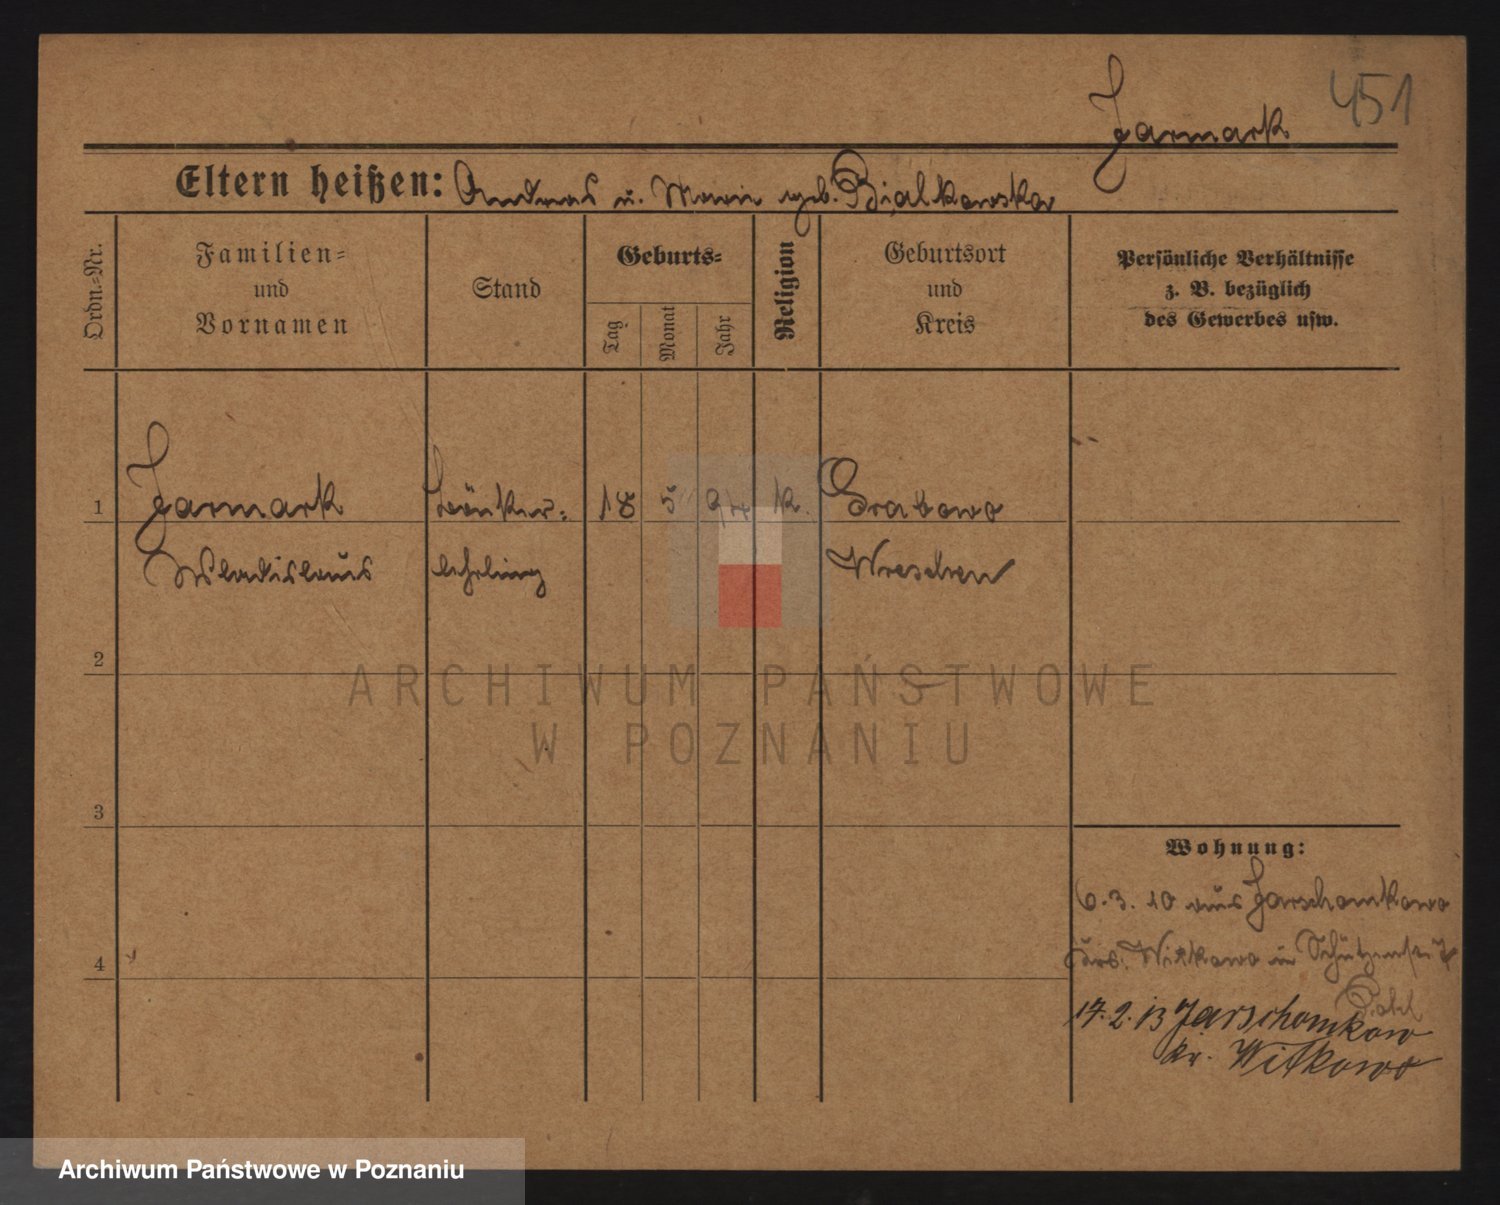 451
Jarmark
Eltern heißen: Andreas u. Marie geb. Bialkowska
Ordn.-Nr.
Familien-
und
Vornamen
Stand
Geburts-
Tag
Monat
Jahr
Religion
Geburtsort
und
Kreis
Persönliche Verhältnisse
z. B. bezüglich
des Gewerbes usw.
1 Jarmark 18 5 94 k. Grabowo
Wladislaus lehrling Wreschen
2
3
4
Wohnung:
6.3.10 aus Jarschomkowo
Witkowo in Schützenstr. 7
17.2.13 Jarschomkowo
Kr. Witkowo
ARCHIWUM PAŃSTWOWE
W POZNANIU
Archiwum Państwowe w Poznaniu